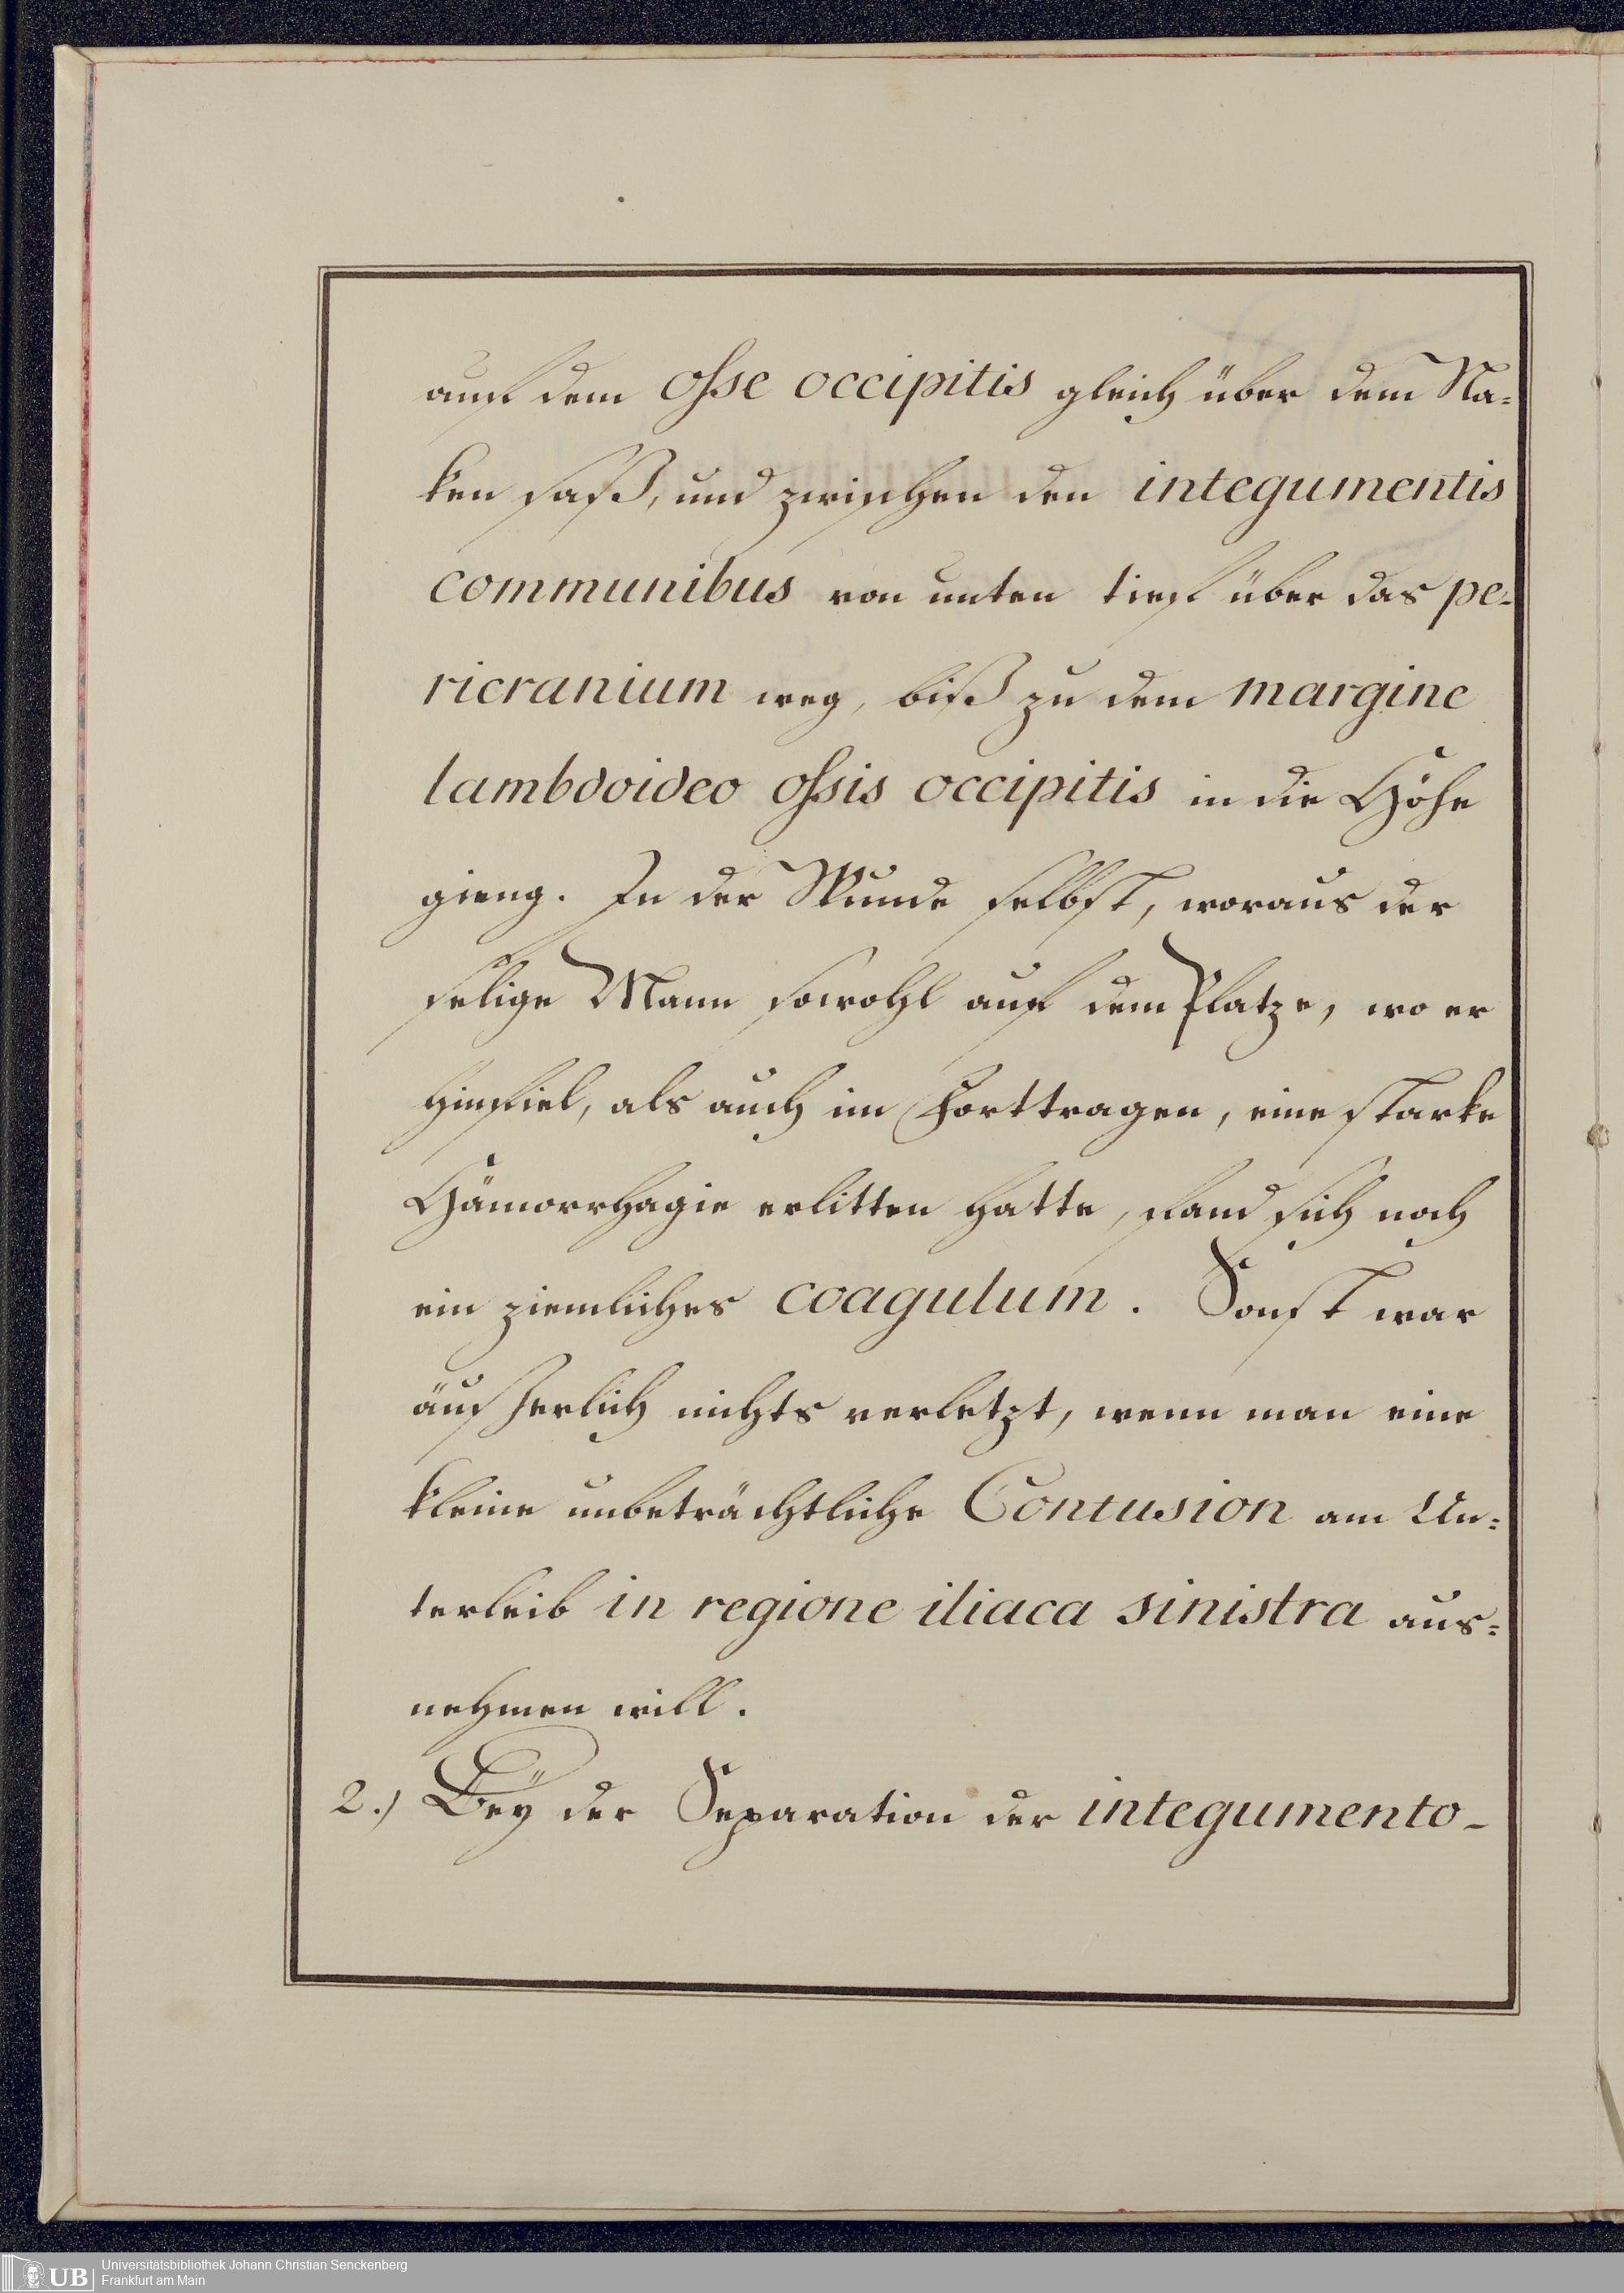 auf dem osse occipitis gleich über dem Na-
ken saß, und zwischen den integumentis
communibus von unten tief über das pe-
ricranium weg, biß zu dem margine
lambdoideo ossis occipitis in die Höhe
gieng. In der Wunde selbst, woraus der
selige Mann sowohl auf dem Platze, wo er
hinfiel, als auch im Forttragen, eine starke
Hämorrhagie erlitten hatte, fand sich noch
ein ziemliches coagulum. Sonst war
äusserlich nichts verletzt, wenn man eine
kleine unbeträchtliche Contusion am Un-
terleib in regione iliaca sinistra aus-
nehmen will.
2.) Bey der Separation der integumento-
UB Universitätsbibliothek Johann Christian Senckenberg
Frankfurt am Main